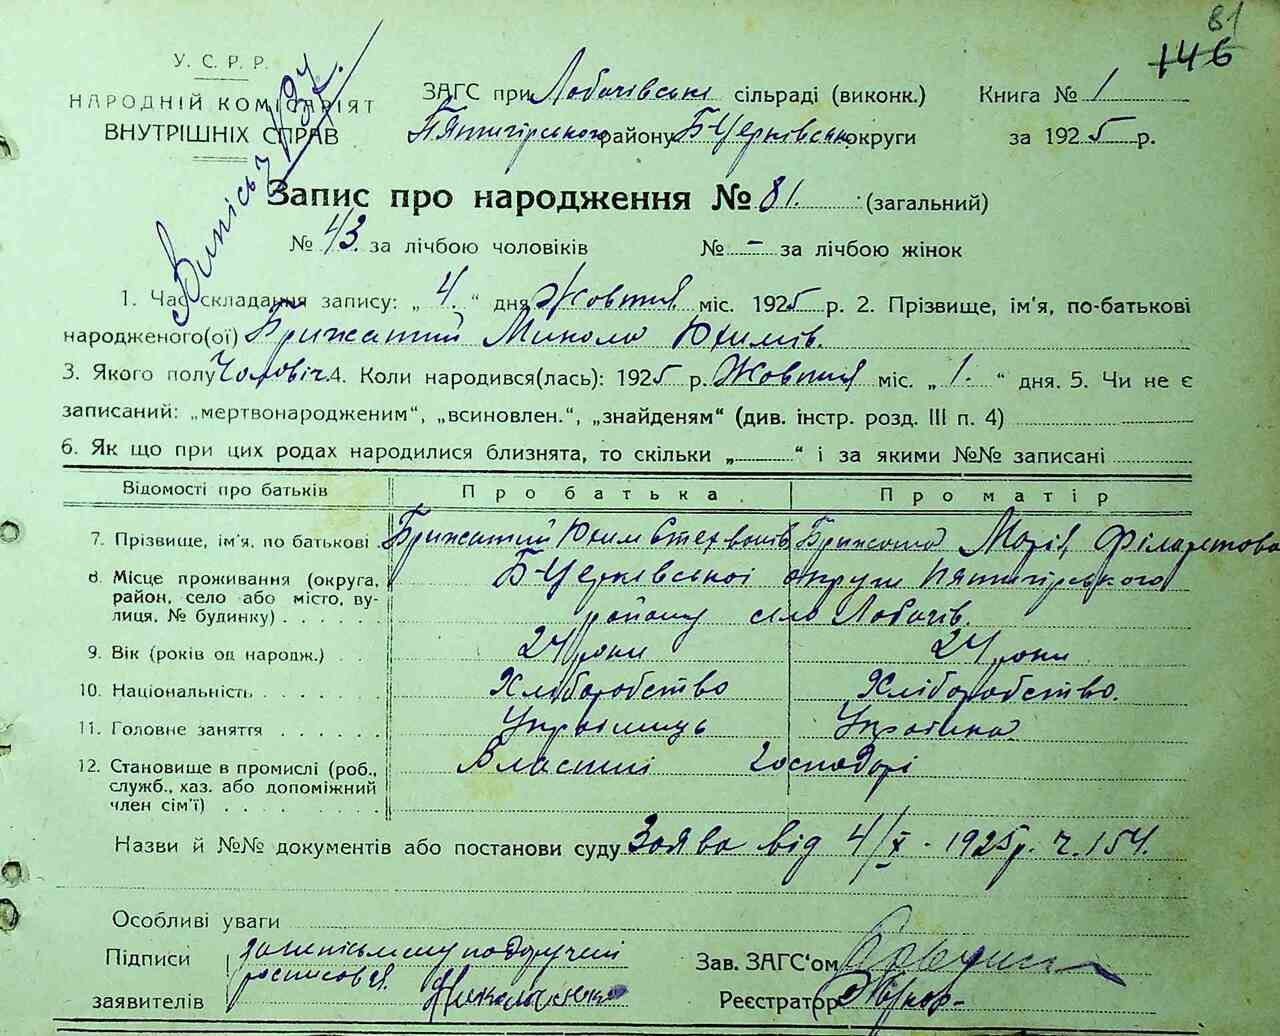 81
146
У. С. Р. Р.
НАРОДНІЙ КОМІСАРІЯТ
ВНУТРІШНІХ СПРАВ
ЗАГС при Лобачівські сільраді (виконк.) Книга № 1
Пятигірського району Б-Церківської округи за 1925 р.
Запис про народження № 81. (загальний)
№ 43. за лічбою чоловіків № - за лічбою жінок
1. Час складання запису: „ 4. “ дня Жовтня міс. 1925 р. 2. Прізвище, ім'я, по-батькові
народженого(ої) Брижатий Микола Юхимів.
3. Якого полу Чоловіч. 4. Коли народився(лась): 1925 р. Жовтня міс. „ 1. “ дня. 5. Чи не є
записаний: „мертвонародженим“, „всиновлен.“, „знайденям“ (див. інстр. розд. III п. 4)
6. Як що при цих родах народилися близнята, то скільки „ “ і за якими №№ записані
Відомості про батьків Про батька Про матір
7. Прізвище, ім'я, по батькові Брижатий Юхим Стехванів Брижата Марія Філаретова
8. Місце проживання (округа, Б-Церківської округи Пятигірського
район, село або місто, ву- району село Лобачів.
лиця, № будинку)
9. Вік (років од народж.) 24 роки 24 роки
10. Національність Хліборобство Хліборобство.
11. Головне заняття Українець Українка
12. Становище в промислі (роб., Власні господарі
служб., хаз. або допоміжний
член сім'ї)
Назви й №№ документів або постанови суду Заява від 4/X - 1925 р. ч. 154.
Особливі уваги
Підписи
росписовся
заявителів
Зав. ЗАГС'ом
Реєстратор